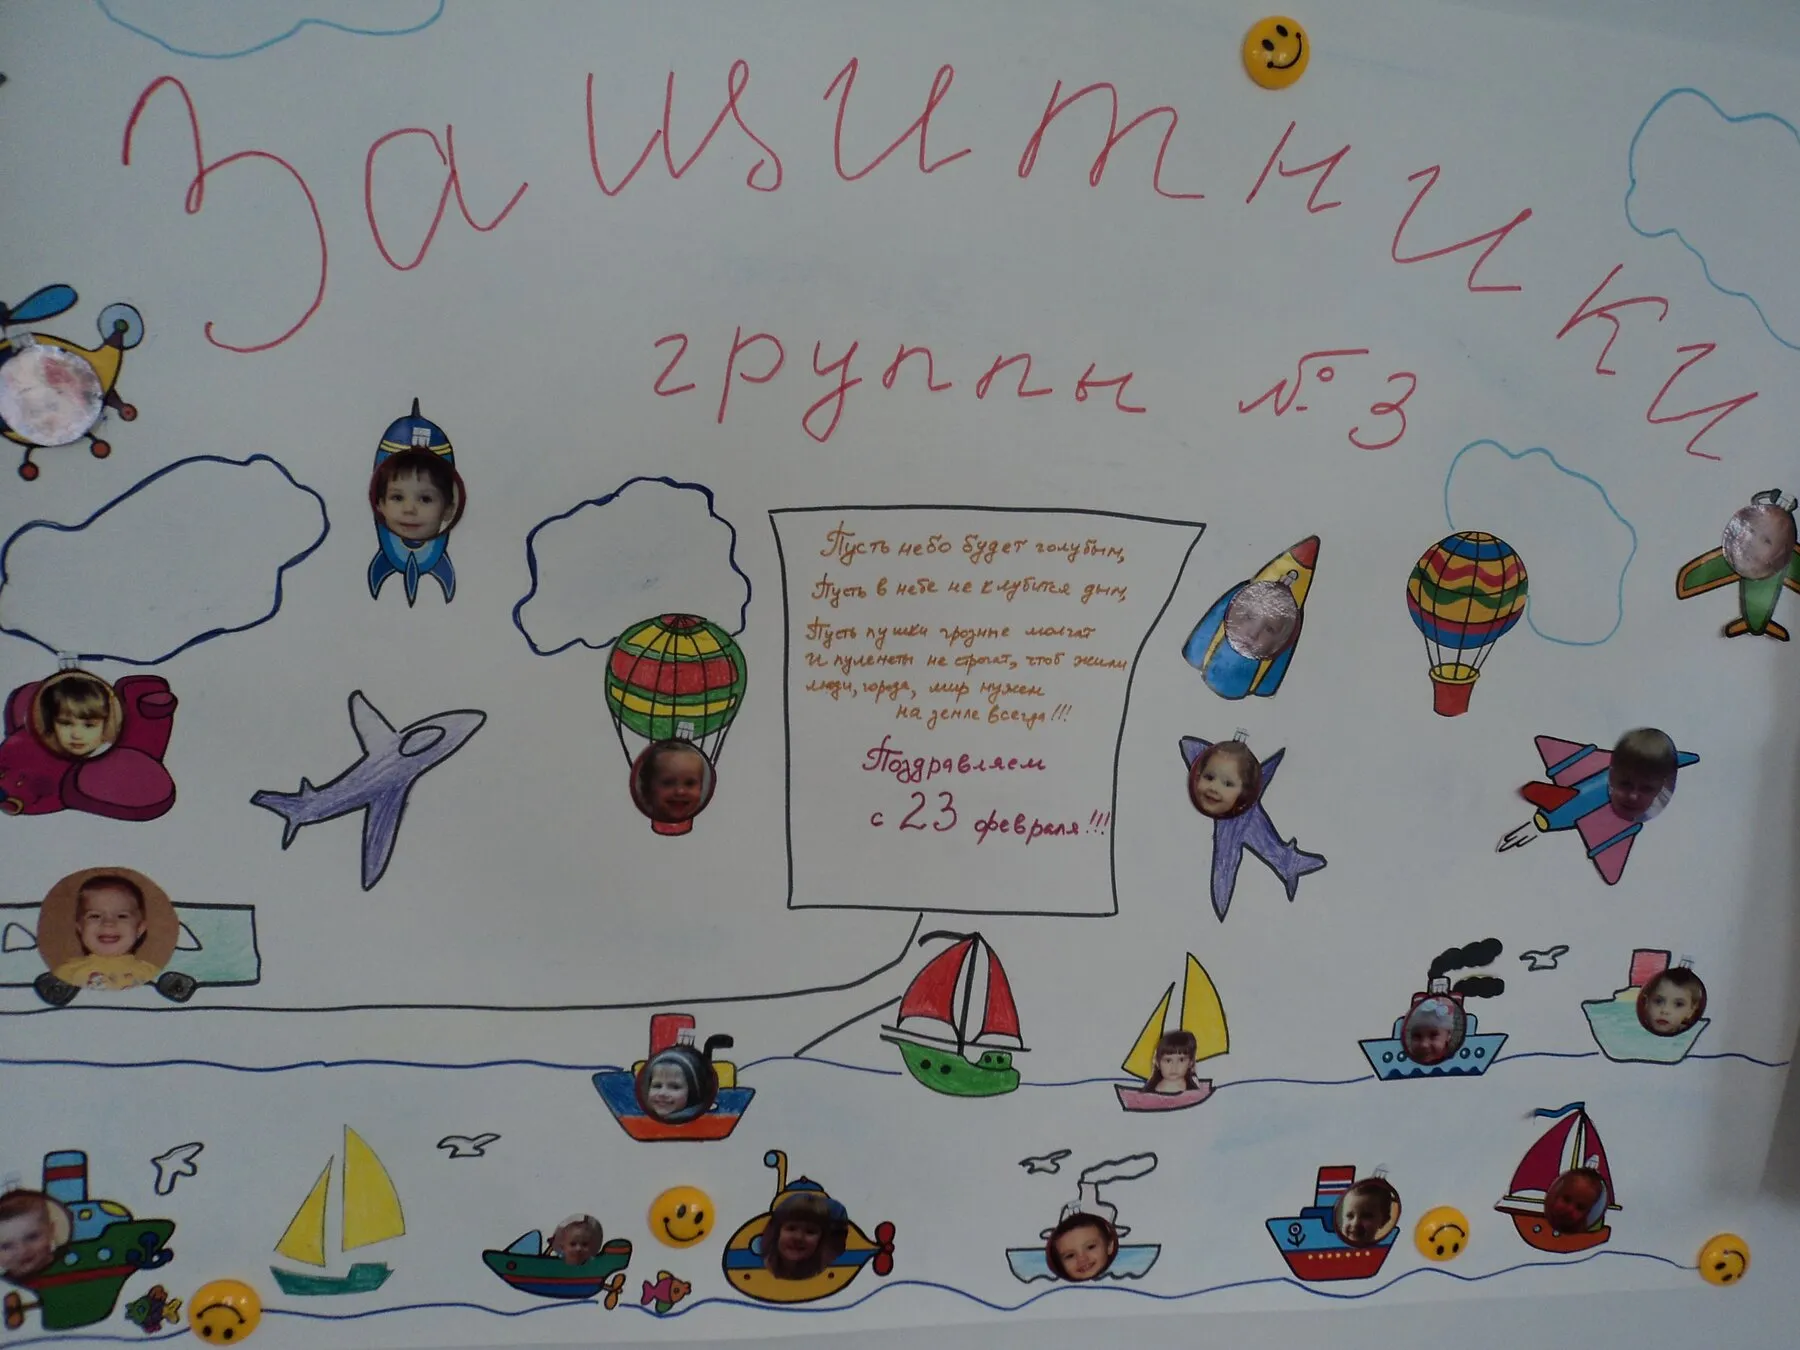 Защитники
группы № 3
Пусть небо будет голубым,
Пусть в небе не клубится дым,
Пусть пушки грозные молчат
и пулеметы не строчат, чтоб жили
люди, города, мир нужен
на земле всегда!!!
Поздравляем
с 23 февраля!!!